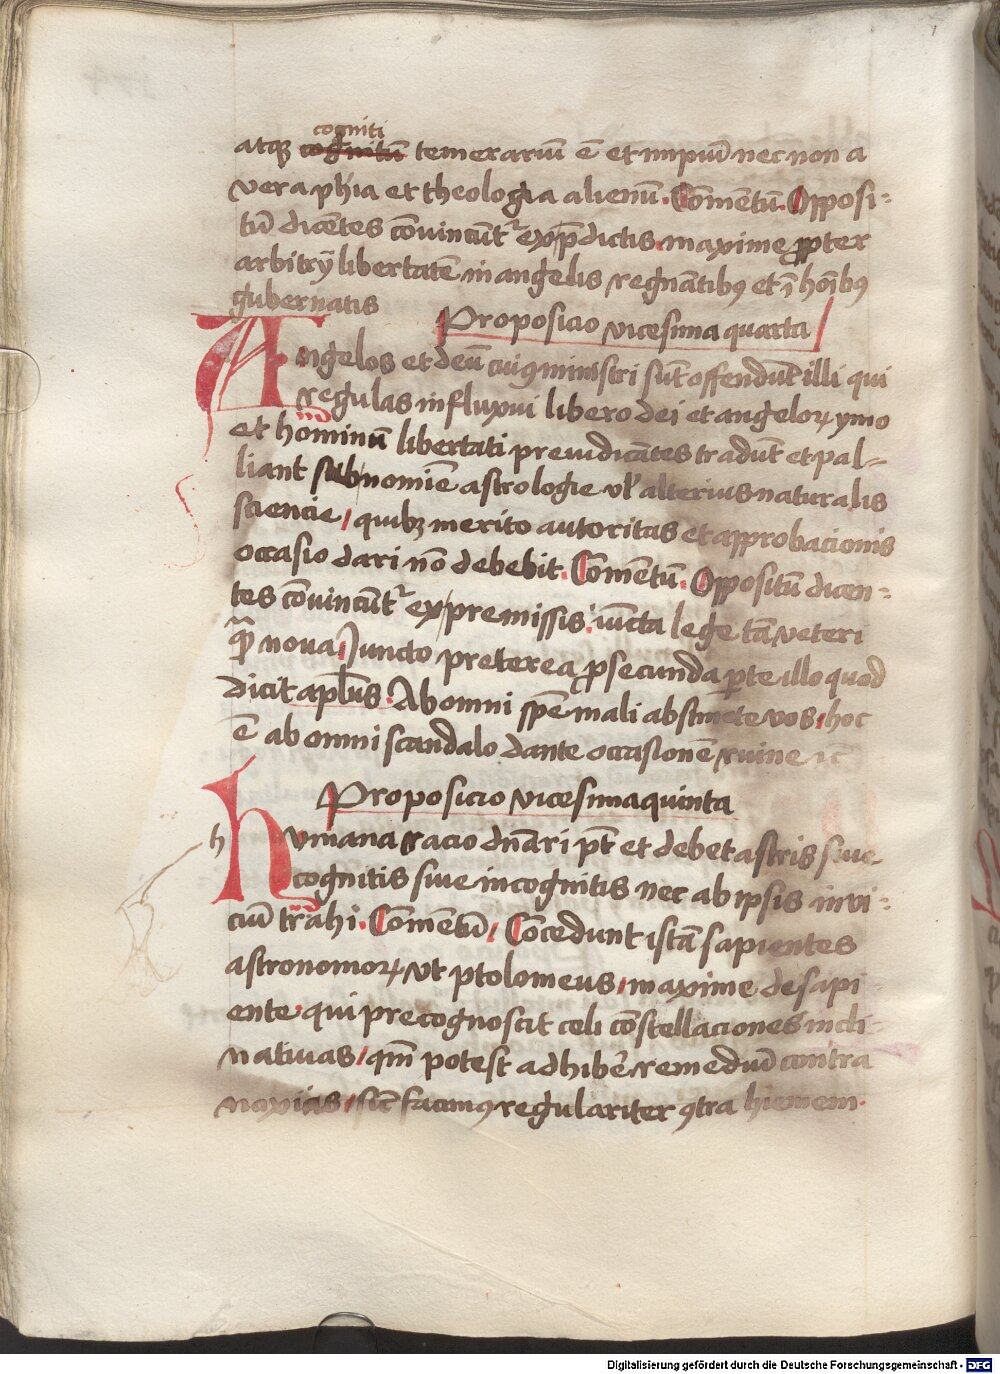 cogniti
atq̃ cognitũ temerariũ ẽ et impiũ nec non a
vera phĩa et theologia alienũ. Cõmentũ. Opposi-
tũ dicẽtes cõvincũt᷑ ex p̃dictis maxime ꝓpter
arbitrij libertatẽ in angelis regnãtibꝰ et ĩ hoĩbꝰ
gubernatis
Proposicio vicesima quarta
Angelos et deũ cuiꝰ ministri sũt offendũt illi qui
regulas influxui libero dei et angeloꝝ ymo
et hominum libertati preiudicãtes tradũt et pal-
liant sub nomĩe astrologie vl̃ alterius naturalis
sciencie, quibꝫ merito autoritas et approbacionis
occasio dari nõ debebit. Cõmentũ. Oppositũ dicen-
tes cõvincũt᷑ ex premissis. iũcta lege tã veteri
q̃ꝫ nova. Juncto preterea ꝓ secunda p̱te illo quod
dicit apl̃us. Ab omni spẽ mali abstinete vos, hoc
ẽ ab omni scandalo dante occasionẽ ruine ⁊c̃
Proposicio vicesima quinta
h
Humana racio dñari põt et debet astris sive
cognitis sive incognitis nec ab ipsis invi-
ciũ trahi. Cõmentũ, Cõcedunt istã sapientes
astronomoꝝ, vt ptolomeus, maxime de sapi-
ente qui precognoscit celi cõstellaciones incli-
nativas, qm̃ potest adhibẽr remediũ contra
noxias, sic̃ facimꝰ regulariter ꝯtra hiemem.
Digitalisierung gefördert durch die Deutsche Forschungsgemeinschaft - DFG